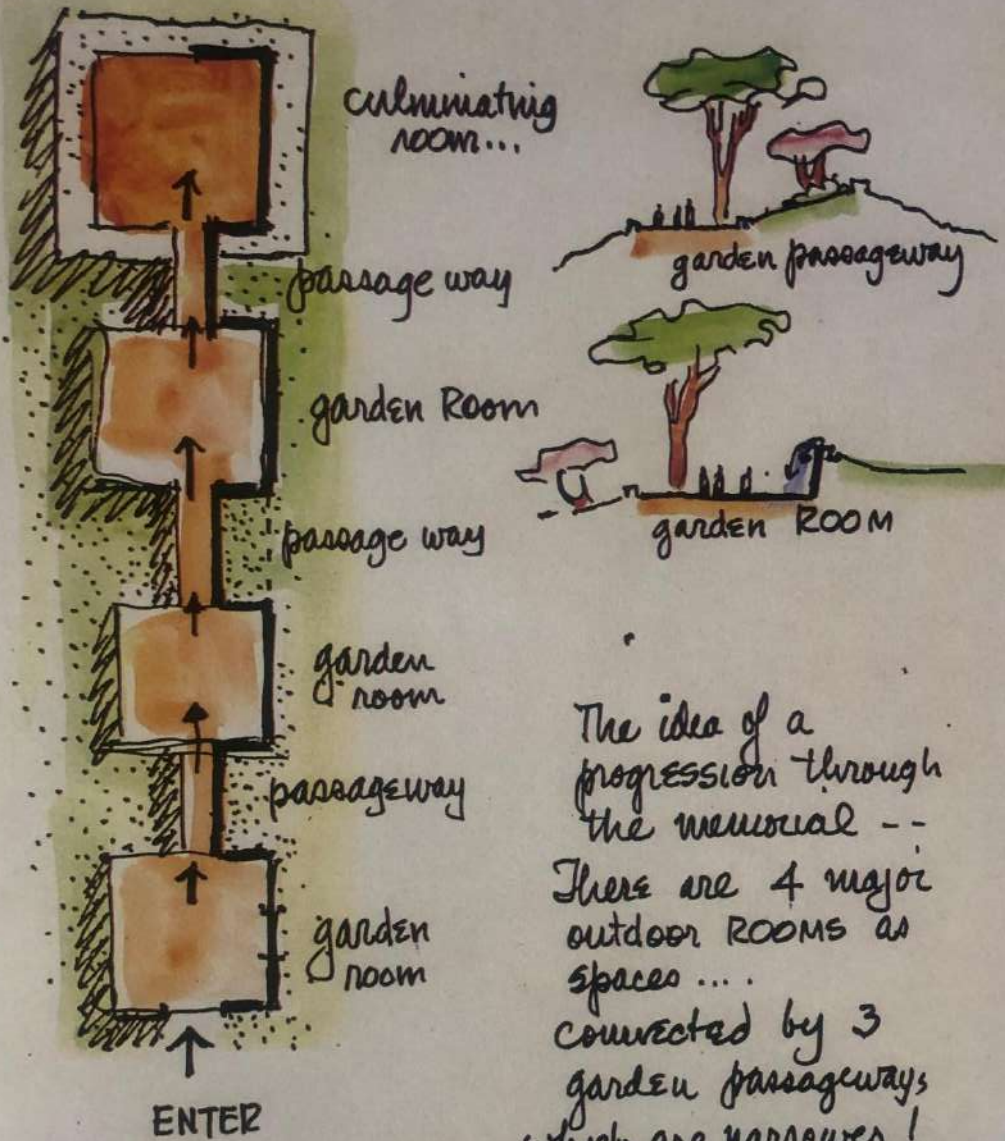 culminating
room...
passage way
garden Room
passage way
garden
room
passageway
garden
room
ENTER
garden passageway
garden ROOM
The idea of a
progression through
the memorial --
There are 4 major
outdoor ROOMS as
spaces ....
connected by 3
garden passageways
which are narrower!